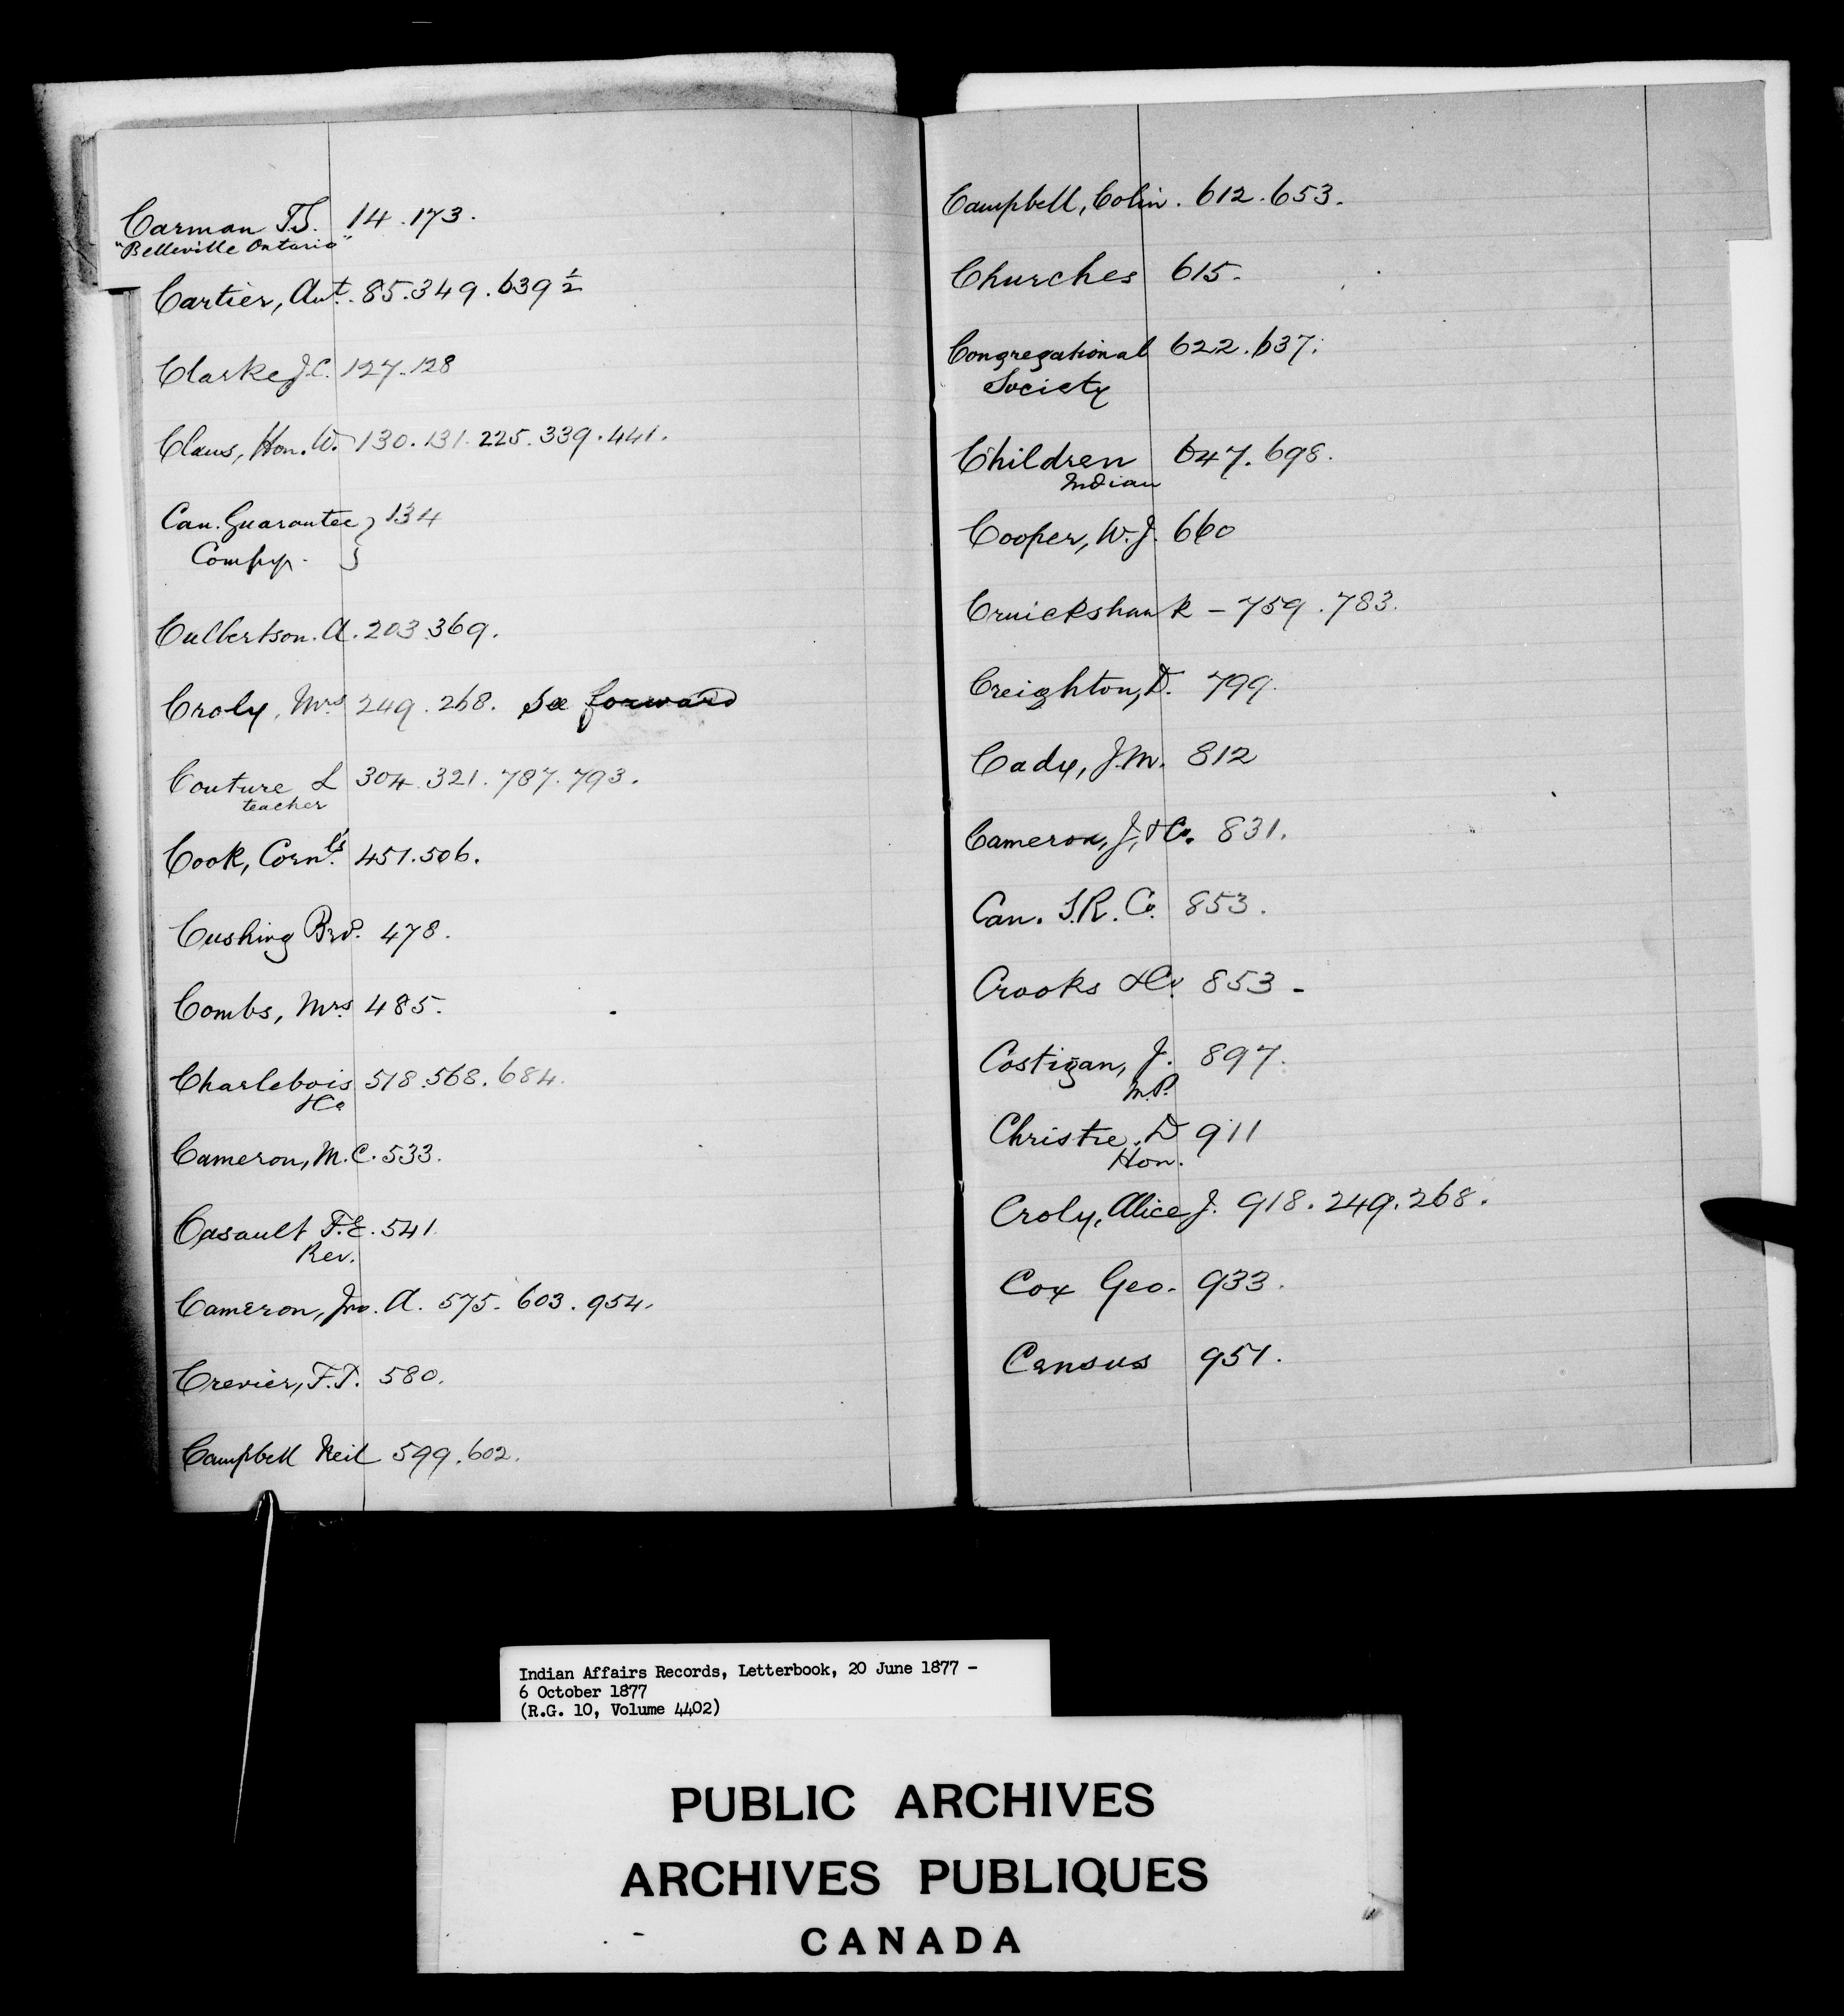 Carman T.S. 14.173.
"Belleville Ontario"
Cartier, Ant. 85.349.639½
Clarke J.C. 127.128
Claus, Hon. W. 130.131.225.339.441.
Can. Guarantee } 134
Compy. }
Culbertson. A. 203.369.
Croly, Mrs 249.268. See forward
Couture L 304.321.787.793.
teacher
Cook, Corn.ls 451.506.
Cushing Bro. 478.
Combs, Mrs 485.
Charlebois 518.568.684.
&Co
Cameron, M.C. 533.
Casault F.E. 541.
Rev.
Cameron, Jno. A. 575.603.954.
Crevier, F.T. 580.
Campbell Neil 599.602.
Campbell, Colin. 612.653.
Churches 615.
Congregational 622.637.
Society
Children 647.698.
Indian
Cooper, W.J. 660
Cruickshank – 759.783.
Creighton, D. 799.
Cady, J.M. 812
Cameron, J, & Co. 831.
Can. S.R. Co. 853.
Crooks & Co. 853 -
Costigan, J. 897.
M.P.
Christie, D 911
Hon.
Croly, Alice J. 918.249.268.
Cox Geo. 933.
Census 951.
Indian Affairs Records, Letterbook, 20 June 1877 -
6 October 1877
(R.G. 10, Volume 4402)
PUBLIC ARCHIVES
ARCHIVES PUBLIQUES
CANADA